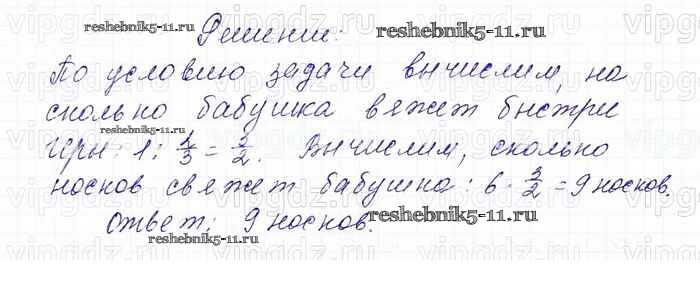 Решение:
По условию задачи вычислим, на
сколько бабушка вяжет быстрее
Иры: 1 : 2/3 = 3/2. Вычислим, сколько
носков свяжет бабушка: 6 · 3/2 = 9 носков.
Ответ: 9 носков.
reshebnik5-11.ru
reshebnik5-11.ru
reshebnik5-11.ru
reshebnik5-11.ru
reshebnik5-11.ru
vipgdz.ru